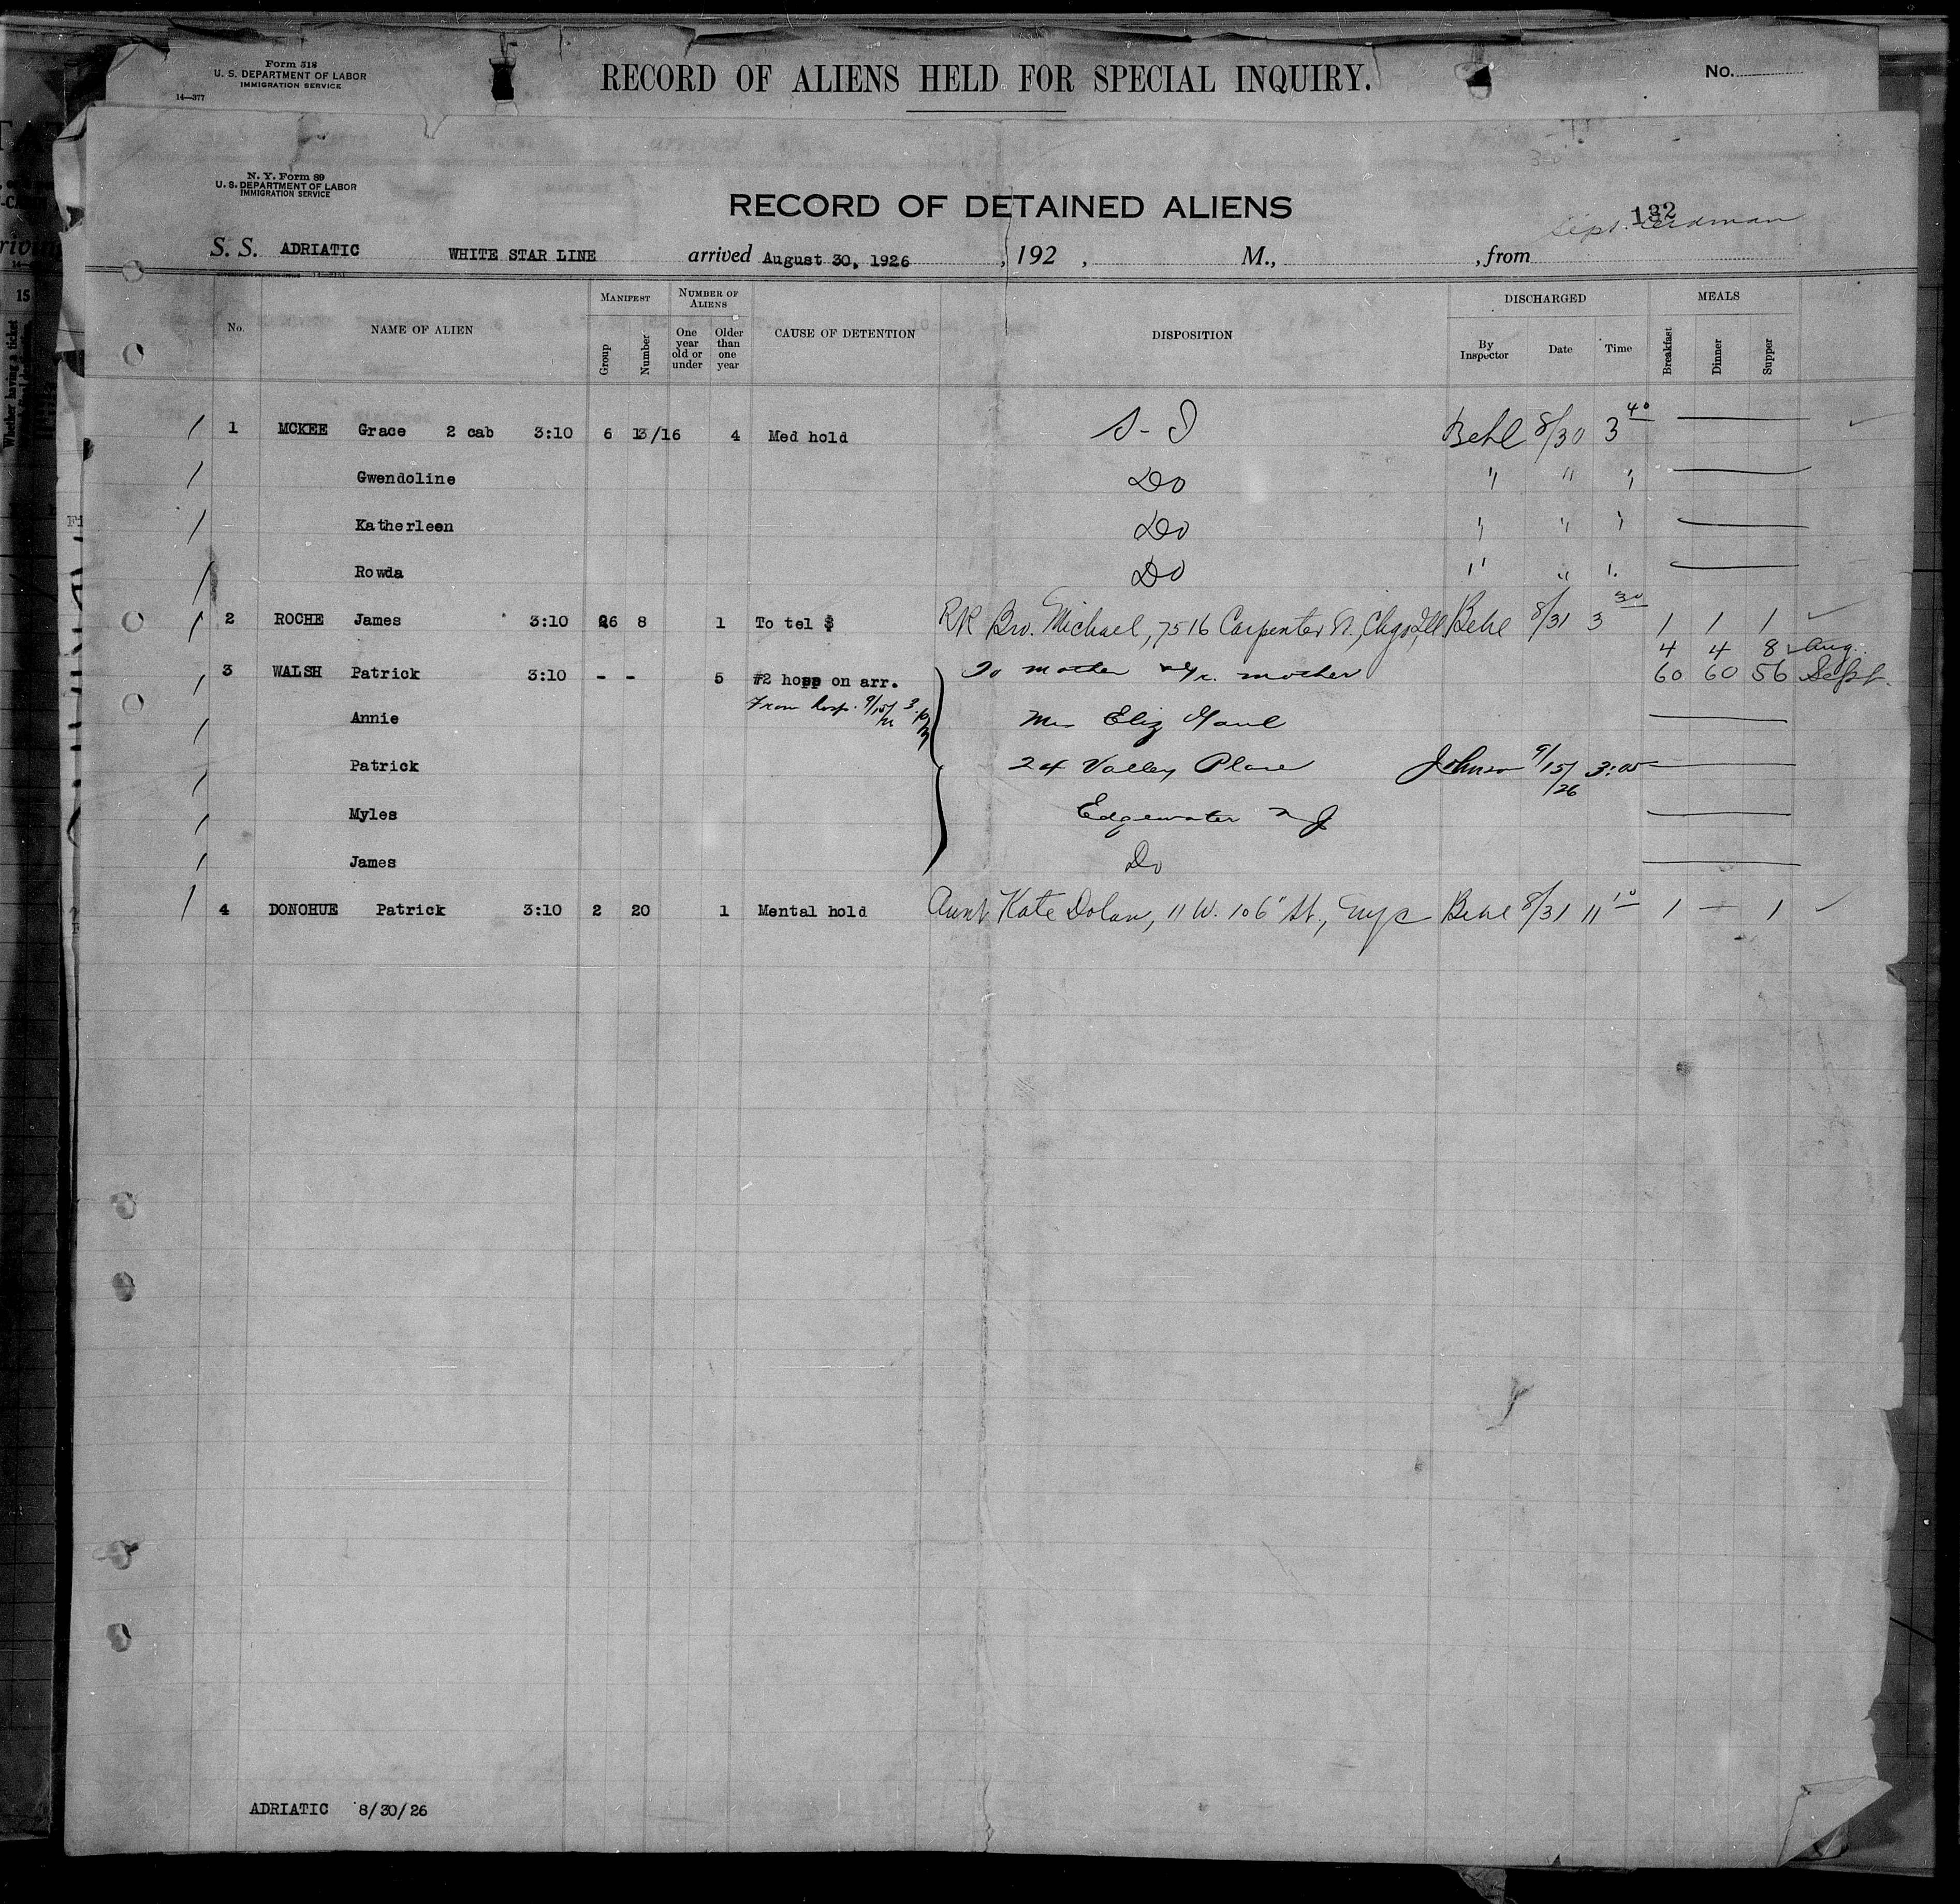 Form 518
U. S. DEPARTMENT OF LABOR
IMMIGRATION SERVICE
14—377
RECORD OF ALIENS HELD FOR SPECIAL INQUIRY.
No.
N. Y. Form 89
U. S. DEPARTMENT OF LABOR
IMMIGRATION SERVICE
RECORD OF DETAINED ALIENS
132
Sept.
S. S. ADRIATIC WHITE STAR LINE arrived August 30, 1926 , 192 , M., , from
No. NAME OF ALIEN MANIFEST Group Number NUMBER OF ALIENS One year old or under Older than one year CAUSE OF DETENTION DISPOSITION DISCHARGED By Inspector Date Time MEALS Breakfast Dinner Supper
15
Whether having a ticket
1 MCKEE Grace 2 cab 3:10 6 13/16 4 Med hold S-I Behl 8/30 3 40
Gwendoline Do " " "
Katherleen Do " " "
Rowda Do " " "
2 ROCHE James 3:10 26 8 1 To tel $ RR Bro. Michael, 7516 Carpenter St., Chgo, Ill Behl 8/31 3 30 1 1 1
4 4 8 Aug.
3 WALSH Patrick 3:10 - - 5 #2 hosp on arr. To mother mother 60 60 56 Sept.
From hosp. 9/15/26 3
Annie Mrs Eliz Gaul
Patrick 24 Valley Place Johnson 9/15/26 3:05
Myles Edgewater NJ
James Do
4 DONOHUE Patrick 3:10 2 20 1 Mental hold Aunt Kate Dolan, 11 W. 106" St., NYC Behl 8/31 11 10 1 — 1
ADRIATIC 8/30/26